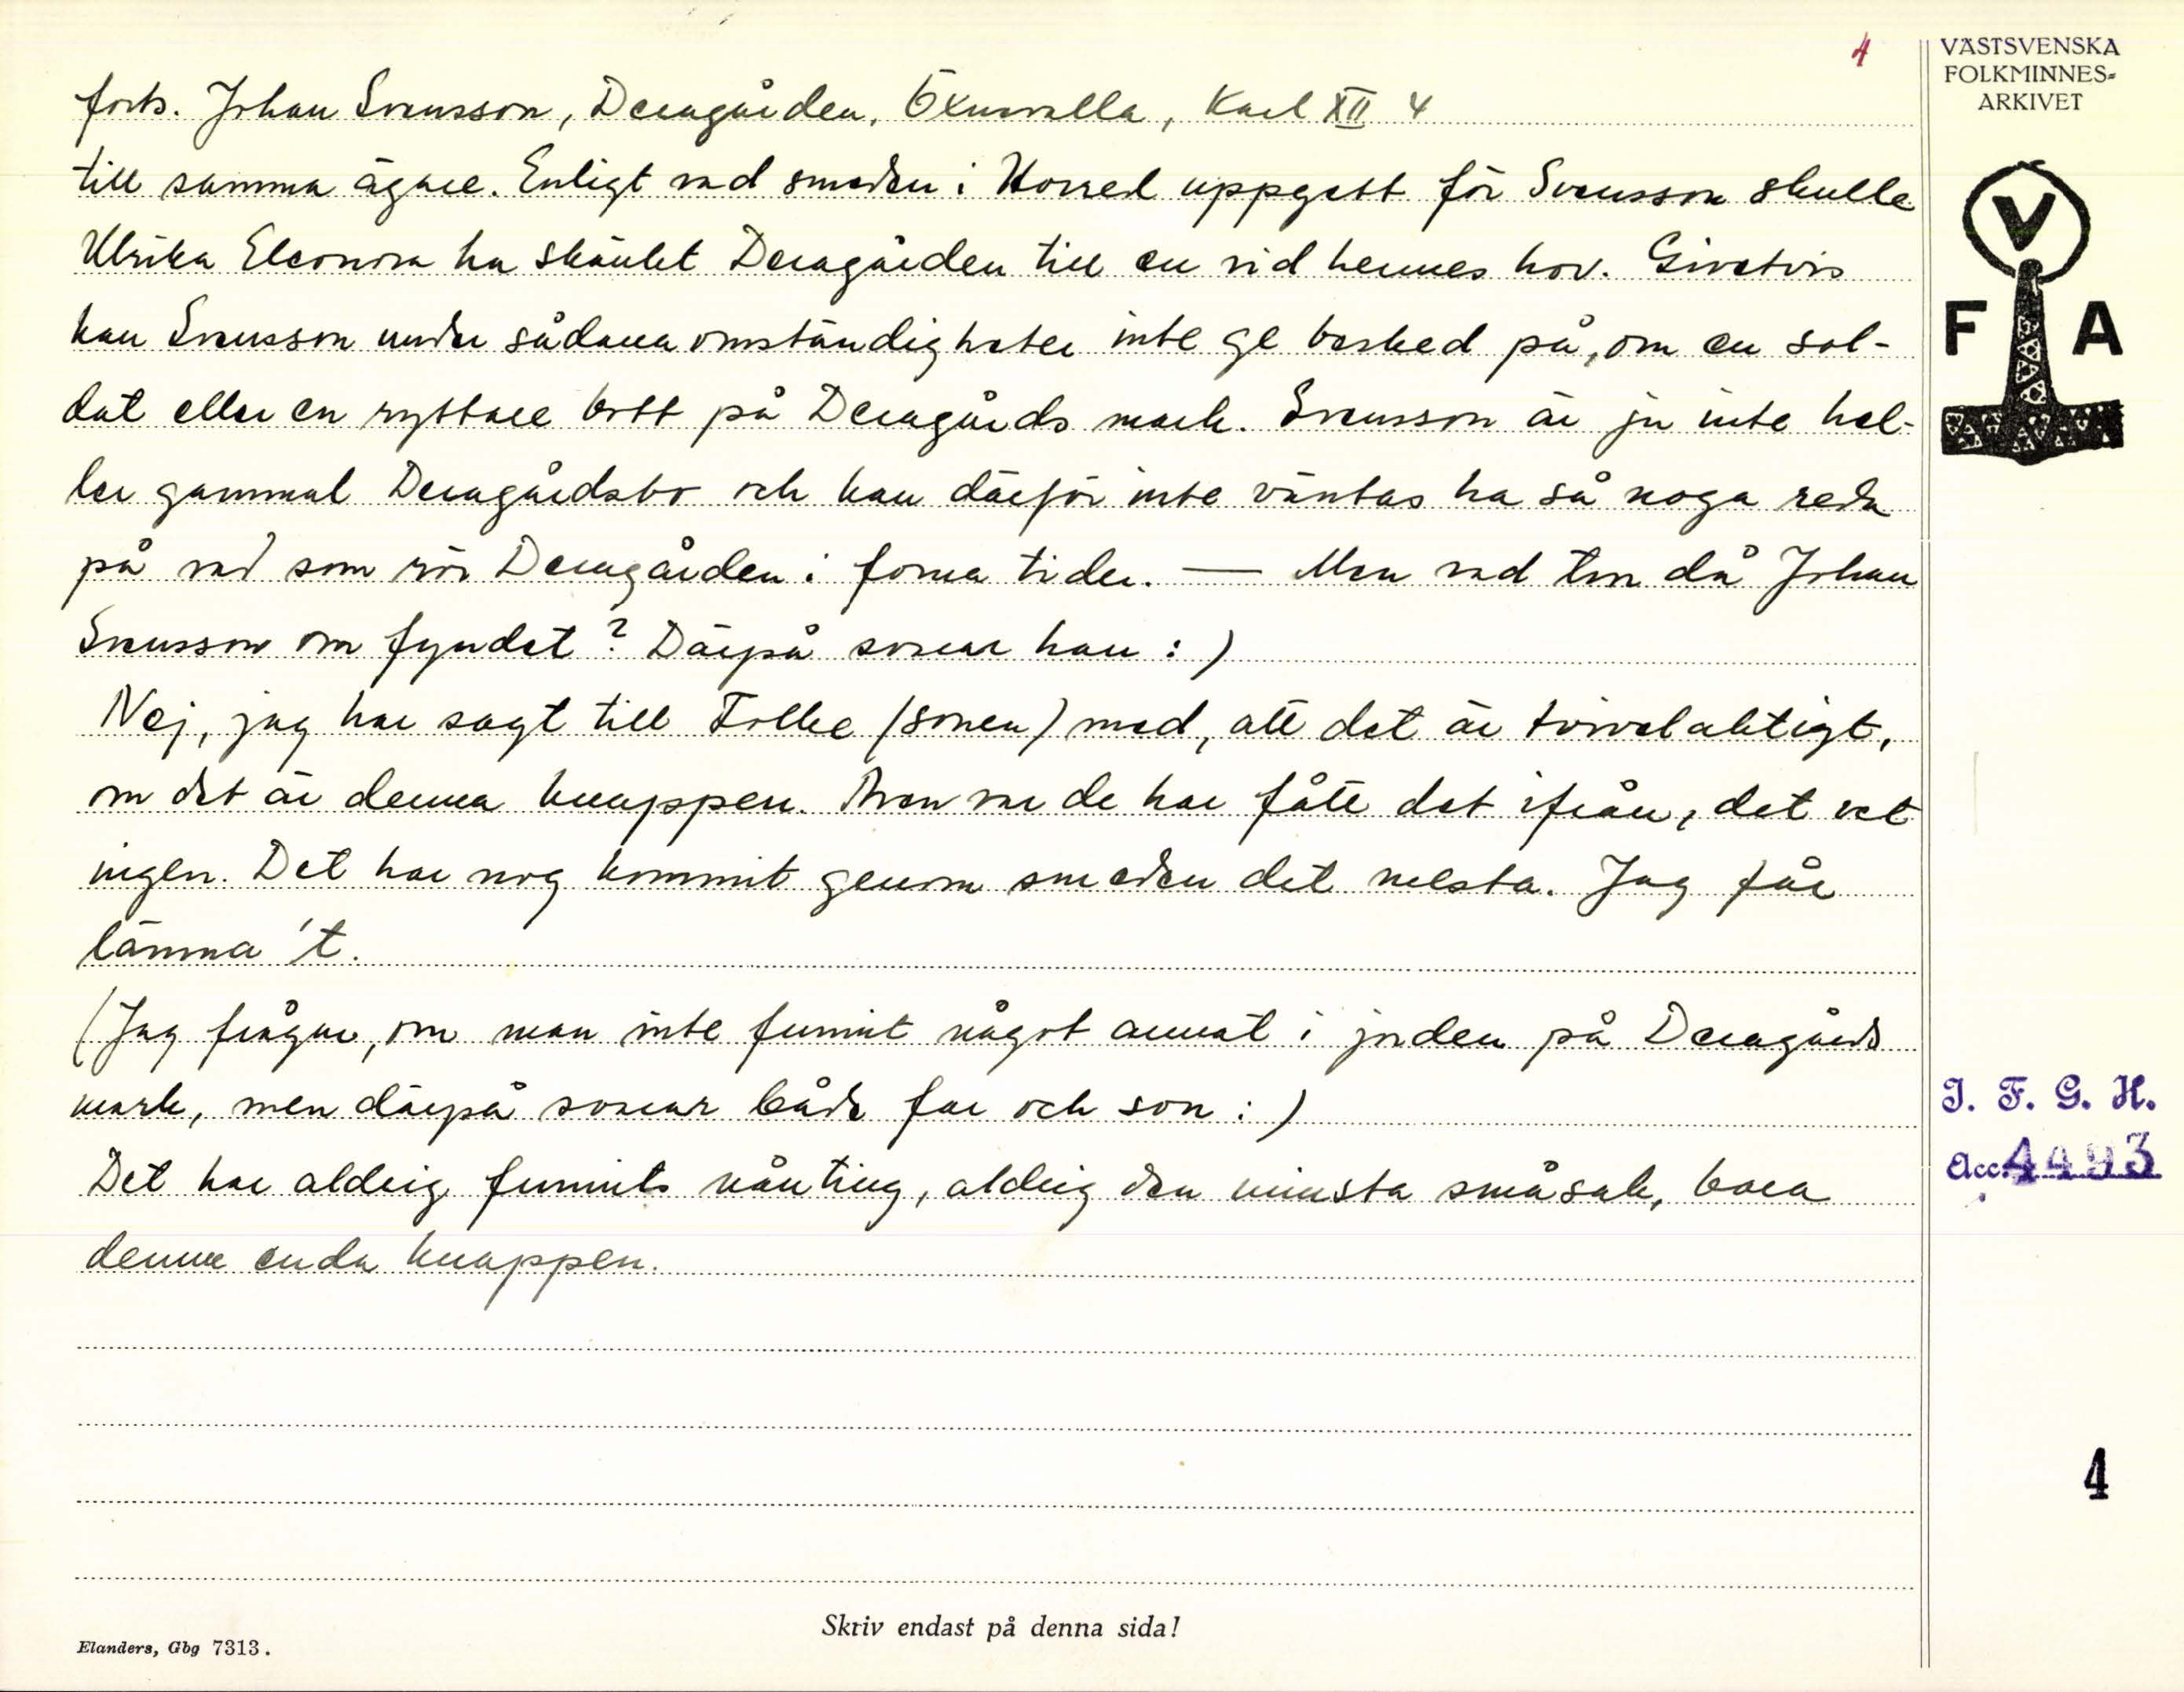 4
VÄSTSVENSKA
FOLKMINNES=
ARKIVET
forts. Johan Svensson, Deragården, Öxnevalla, Karl XII 4
till samma ägare. Enligt vad smeden i Horred uppgett för Svensson skulle
Ulrika Eleonora ha skänkt Deragården till en vid hennes hov. Givetvis
kan Svensson under sådana omständigheter inte ge besked på, om en sol-
dat eller en ryttare bott på Deragårds mark. Svensson är ju inte hel-
ler gammal Deragårdsbo och kan därför inte väntas ha så noga reda
på vad som rör Deragården i forna tider. — Men vad tror då Johan
Svensson om fyndet? Därpå svarar han:)
Nej, jag har sagt till Folke (sonen) med, att det är tvivelaktigt,
om det är denna knappen. Men var de har fått det ifrån, det vet
ingen. Det har nog kommit genom smeden det mesta. Jag får
lämna 't.
(Jag frågar, om man inte funnit något annat i jorden på Deragårds
mark, men därpå svarar både far och son:)
Det har aldrig funnits nånting, aldrig den minsta småsak, bara
denna enda knappen.
V
F A
I. F. G. H.
Acc. 4493
4
Skriv endast på denna sida!
Elanders, Gbg 7313.